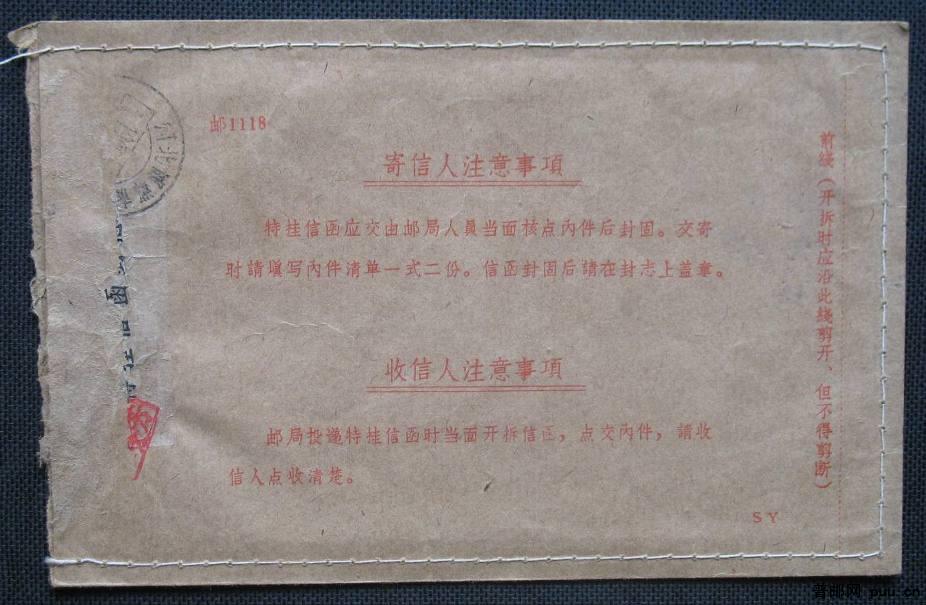 邮1118
寄信人注意事項
特挂信函应交由邮局人員当面核点內件后封固。交寄
时請填写內件清单一式二份。信函封固后請在封志上盖章。
收信人注意事項
邮局投递特挂信函时当面开拆信函，点交內件，請收
信人点收清楚。
剪綫（开拆时应沿此綫剪开、但不得剪断）
SY
普邮网 puu.cn